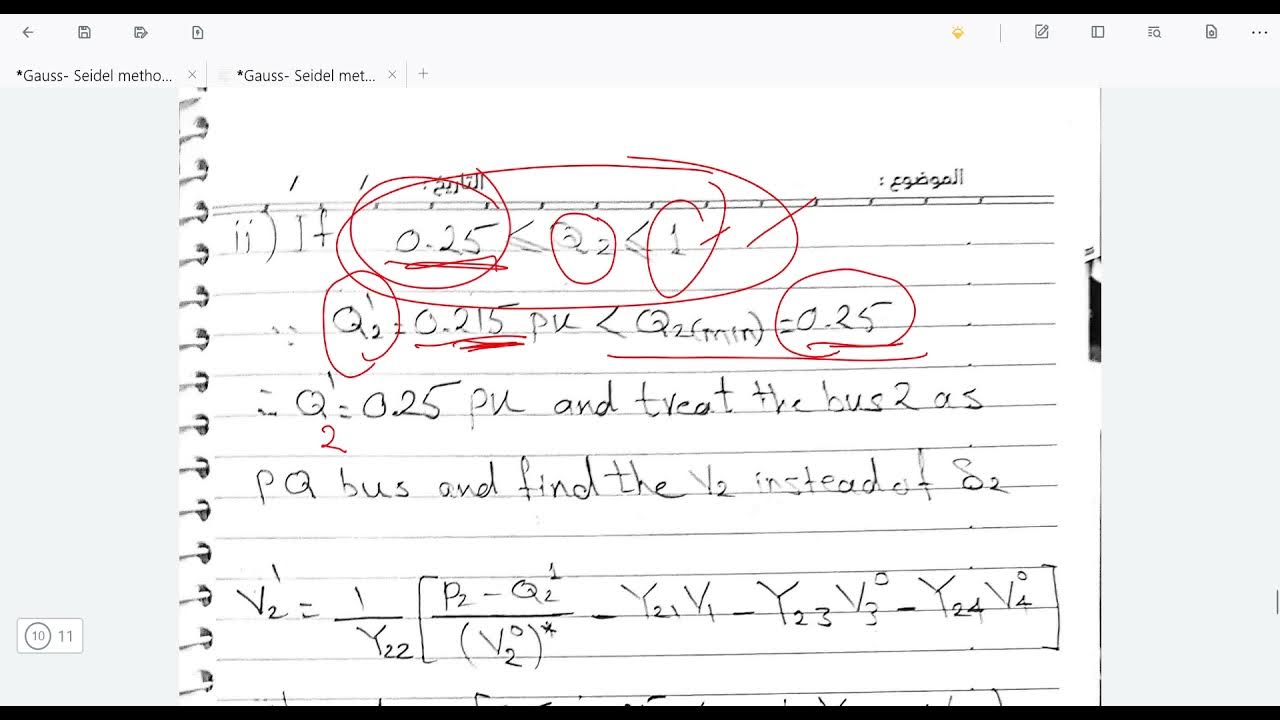 *Gauss- Seidel metho... *Gauss- Seidel met...
الموضوع : التاريخ : / /
ii) If 0.25 ≤ Q2 ≤ 1
∵ Q2^1 = 0.215 pu < Q2(min) = 0.25
∴ Q2^1 = 0.25 pu and treat the bus 2 as
PQ bus and find the V2 instead of δ2
V2^1 = 1/Y22 [ (P2 - Q2^1)/(V2^0)* - Y21 V1 - Y23 V3^0 - Y24 V4^0 ]
10 11